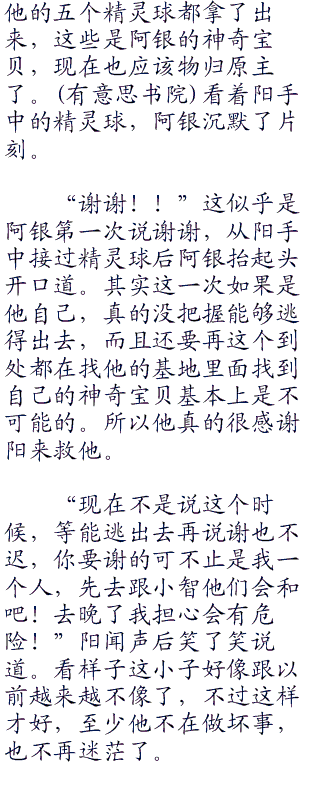 他的五个精灵球都拿了出
来，这些是阿银的神奇宝
贝，现在也应该物归原主
了。(有意思书院)看着阳手
中的精灵球，阿银沉默了片
刻。
“谢谢！！”这似乎是
阿银第一次说谢谢，从阳手
中接过精灵球后阿银抬起头
开口道。其实这一次如果是
他自己，真的没把握能够逃
得出去，而且还要再这个到
处都在找他的基地里面找到
自己的神奇宝贝基本上是不
可能的。所以他真的很感谢
阳来救他。
“现在不是说这个时
候，等能逃出去再说谢也不
迟，你要谢的可不止是我一
个人，先去跟小智他们会和
吧！去晚了我担心会有危
险！”阳闻声后笑了笑说
道。看样子这小子好像跟以
前越来越不像了，不过这样
才好，至少他不在做坏事，
也不再迷茫了。